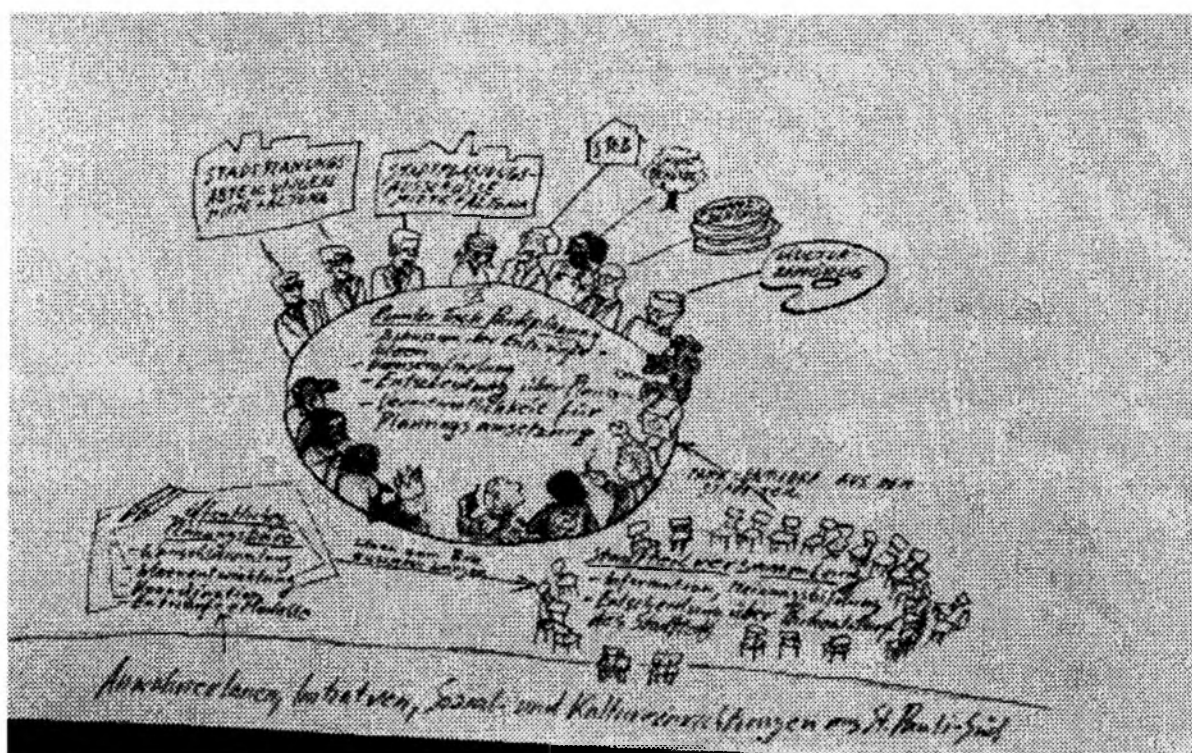 STADTPLANUNGS
ABTEILUNGEN
MITTE + ALTONA
STADTPLANUNGS-
AUSSCHÜSSE
MITTE + ALTONA
STEB
KULTUR-
BEHÖRDE
Runder Tisch Parkplanung
- Diskussion der Entwürfe +
Ideen
- Konsensfindung
- Entscheidung über
- Verantwortlichkeit für
Planungsumsetzung
AUS DEM
STADTTEIL
öffentliches
Planungsbüro
- Wunschsammlung
- Ideenentwicklung
- Koordination
- Entwürfe + Modelle
IDEEN
Stadtteilversammlung
- Information, Meinungsbildung
- Entscheidung über
des Stadtteils
AnwohnerInnen, Initiativen, Sozial- und Kultureinrichtungen aus St. Pauli-Süd